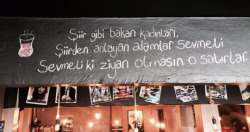 Şiir gibi bakan kadınları,
Şiirden anlayan adamlar sevmeli
Sevmeli ki ziyan olmasın o satırlar.